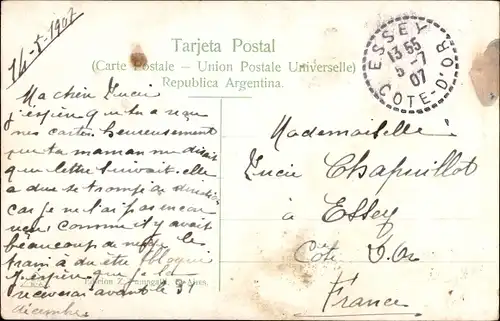 14-5-1907
Tarjeta Postal
(Carte Postale - Union Postale Universelle)
Republica Argentina.
ESSEY
13 55
5 -7
07
COTE-D'OR
Ma chère Lucie
j'espère que tu a reçu
mes cartes heureusement
que ta maman me disait
que lettre suivait. elle
a due se trompé de direction
car je ne l'ai pas encore
reçu, comme il y avait
beaucoup de neige le
train à du être bloqué
J'espère que je la
recevrai avant le 31
décembre
Mademoiselle
Lucie Chapuillot
à Essey
Côte d'Or
France
Aires.